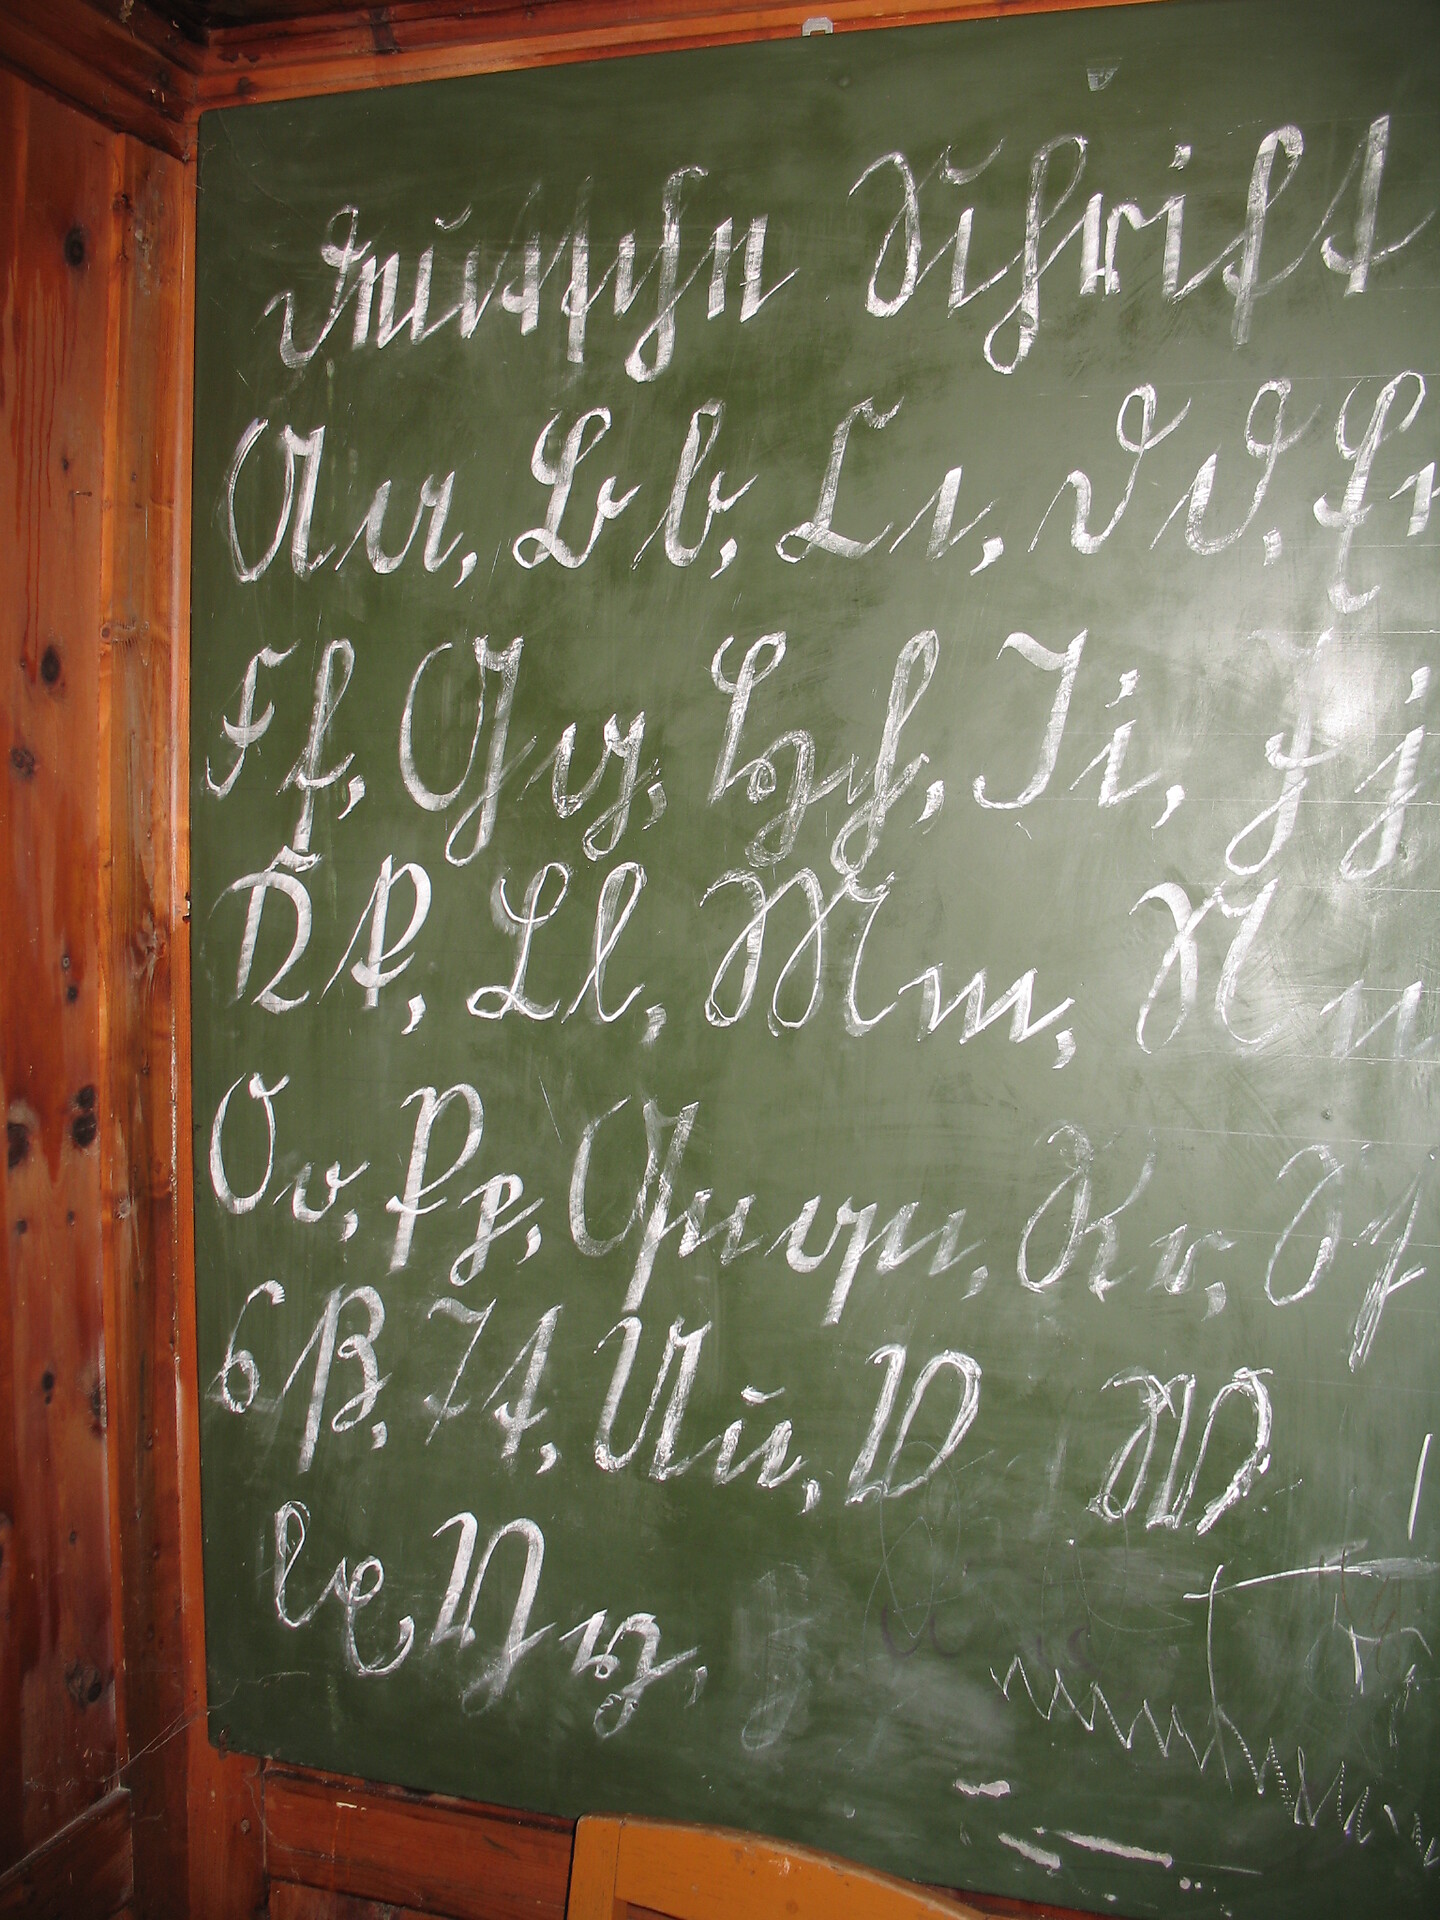 Deutsche Schrift
A a, B b, C c, D d, E e
F f, G g, H h, I i, J j
K k, L l, M m, N n
O o, P p, Qu qu, R r, S s
ß, T t, U u, V W
x, Y y,